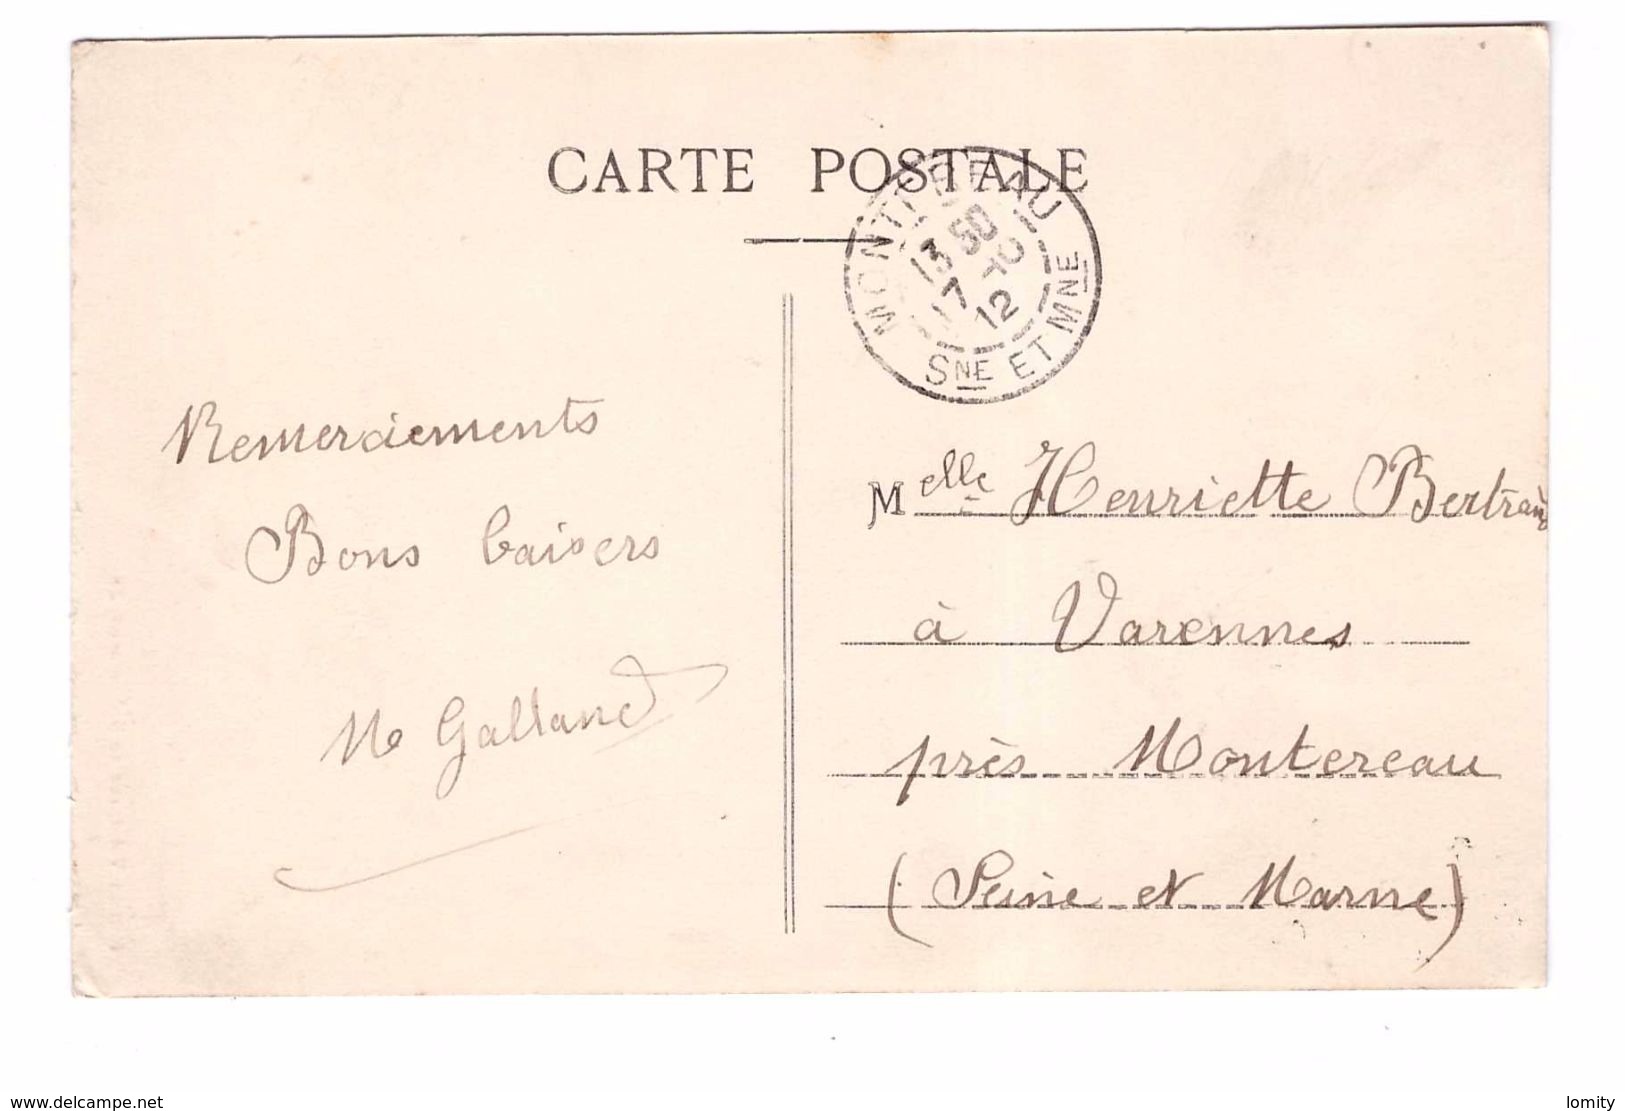 CARTE POSTALE
MONTEREAU
13 50
17 -10
12
SNE ET MNE
Remerciements
Bons baisers
M Galland
Melle Henriette Bertrand
à Varennes
près Montereau
(Seine et Marne)
www.delcampe.net
lomity